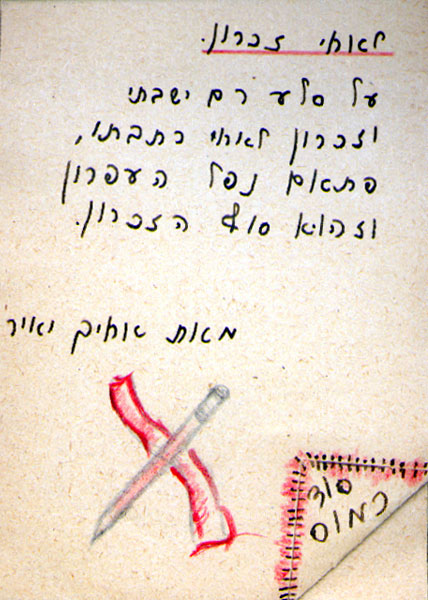 לאחי זכרון.
על סלע רם ישבתי
וזכרון לאחי כתבתי,
פתאום נפל העפרון
וזהוא סוף הזכרון.
מאת אחיך יאיר
סוד
כמוס